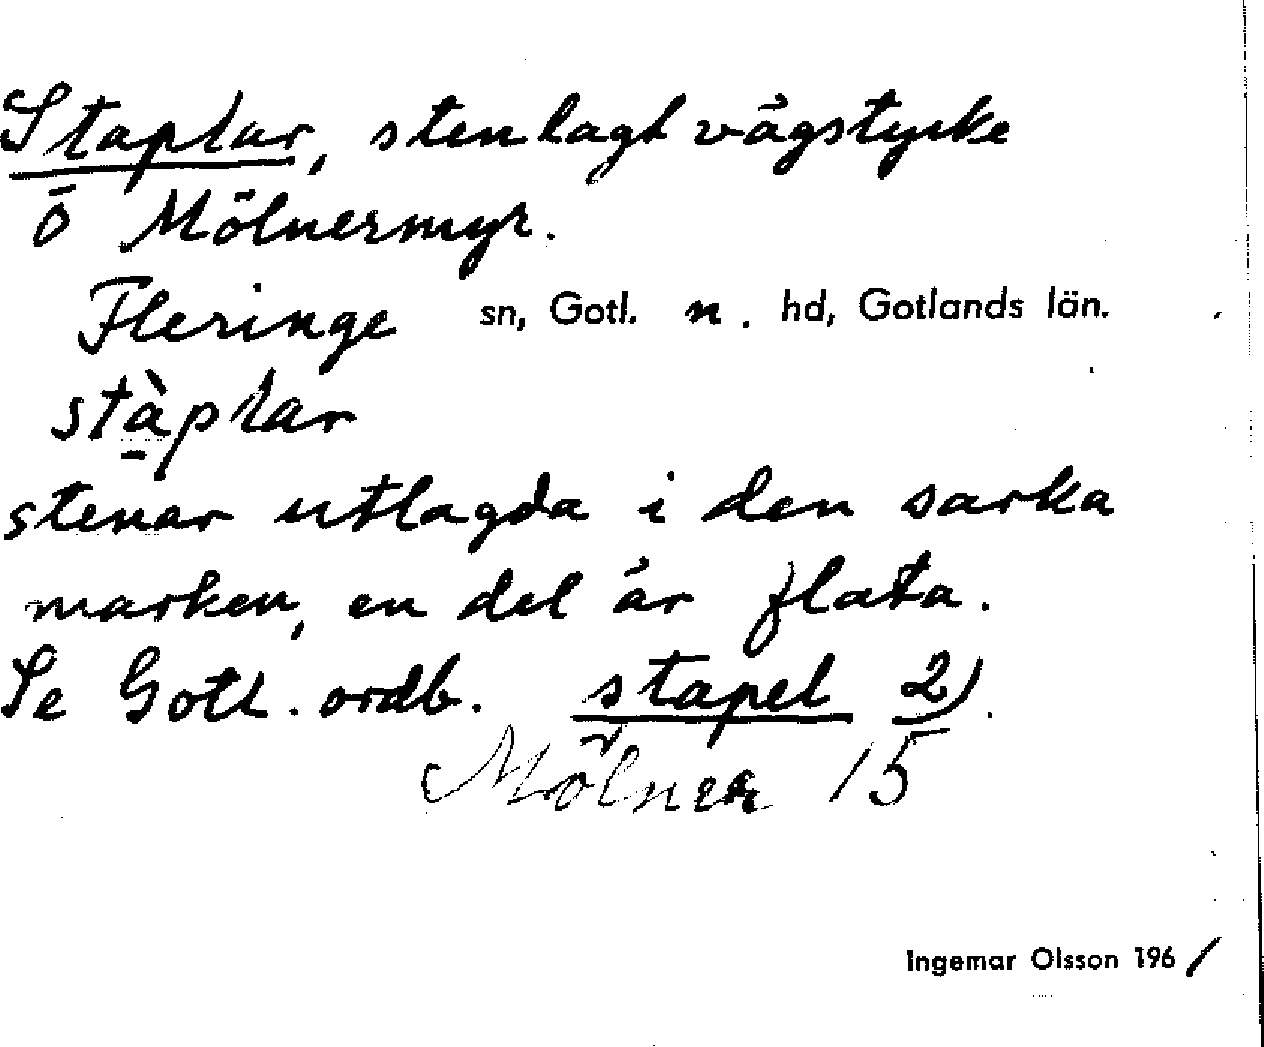 Staplar, stenlagt vägstycke
ö Mölnermyr.
Fleringe sn, Gotl. n. hd, Gotlands län.
stàplar
stenar utlagda i den sanka
marken, en del är flata.
Se Gotl. ordb. stapel 2).
Mölner 15
Ingemar Olsson 1961